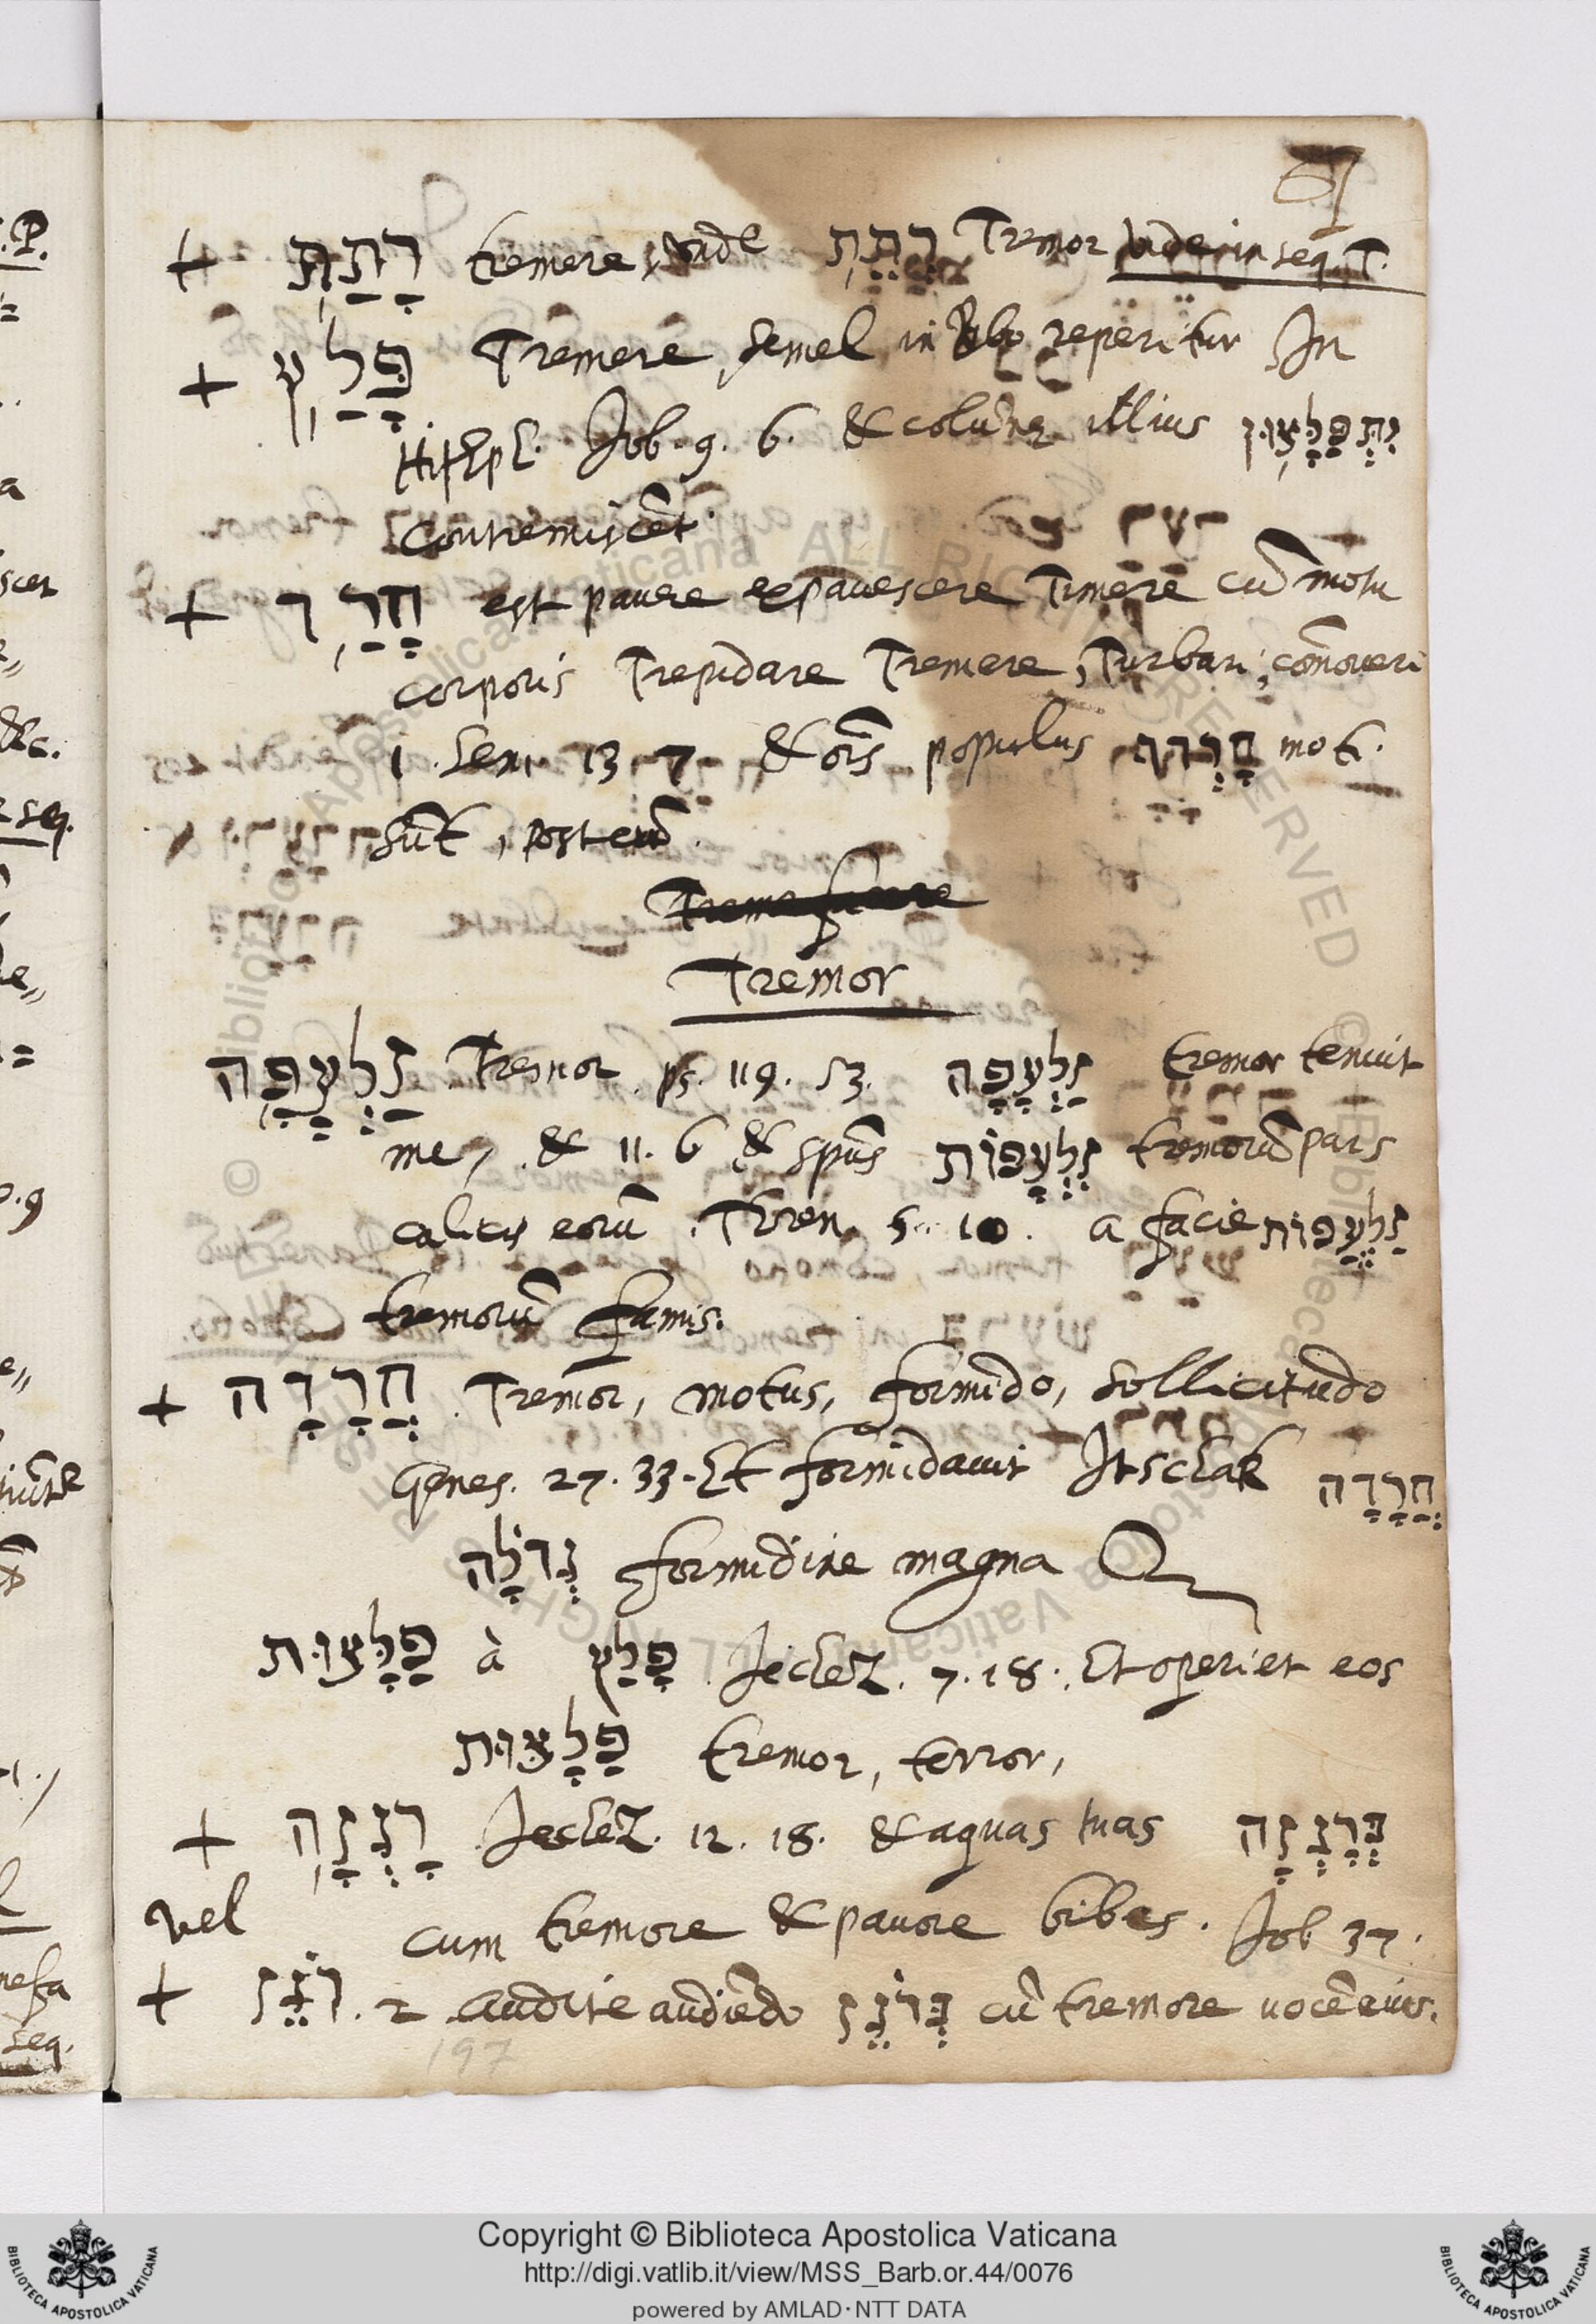 + רָתַת tremere, unde רְתֵת Tremor vide in seq. T.
+ פָּלַץ Tremere, semel in reperitur In
Hithp. Job. 9. 6. & colũnę illius יִתְפַלָּצוּן
contremiscẽt.
+ חָרַד est pavere expavescere Timere cũ motu
corporis Trepidare Tremere, Turbari, com̃overi
1. Sem. 13 7 & oĩs populus חָרְדוּ mot.
sũt, post eũ.
Tremefacere
Tremor
זַלְעָפָה Tremor ps. 119. 53. זַלְעָפָה tremor tenuit
me, & 11. 6 & spũs זִלְעָפוֹת tremorũ pars
calicis eorũ. Thren. 5. 10. a facie זַלְעֲפוֹת
tremorũ famis.
+ חֲרָדָה Tremor, motus, formido, sollicitudo
Genes. 27. 33. Et formidavit Itschak חֲרָדָה
גְדֹלָה formidine magna
פַּלָּצוּת à פָּלַץ Jechez. 7. 18. Et operiet eos
פַּלָּצוּת tremor, terror,
+ רָגְזָה Jechez. 12. 18. & aquas tuas בְּרָגְזָה
vel cum tremore & pavore bibes. Job 37.
+ רֹגֶז. 2 Audite audiẽdo בְּרֹגֶז cũ tremore vocẽ eius.
197
Copyright © Biblioteca Apostolica Vaticana
http://digi.vatlib.it/view/MSS_Barb.or.44/0076
powered by AMLAD·NTT DATA
BIBLIOTECA APOSTOLICA VATICANA
BIBLIOTECA APOSTOLICA VATICANA